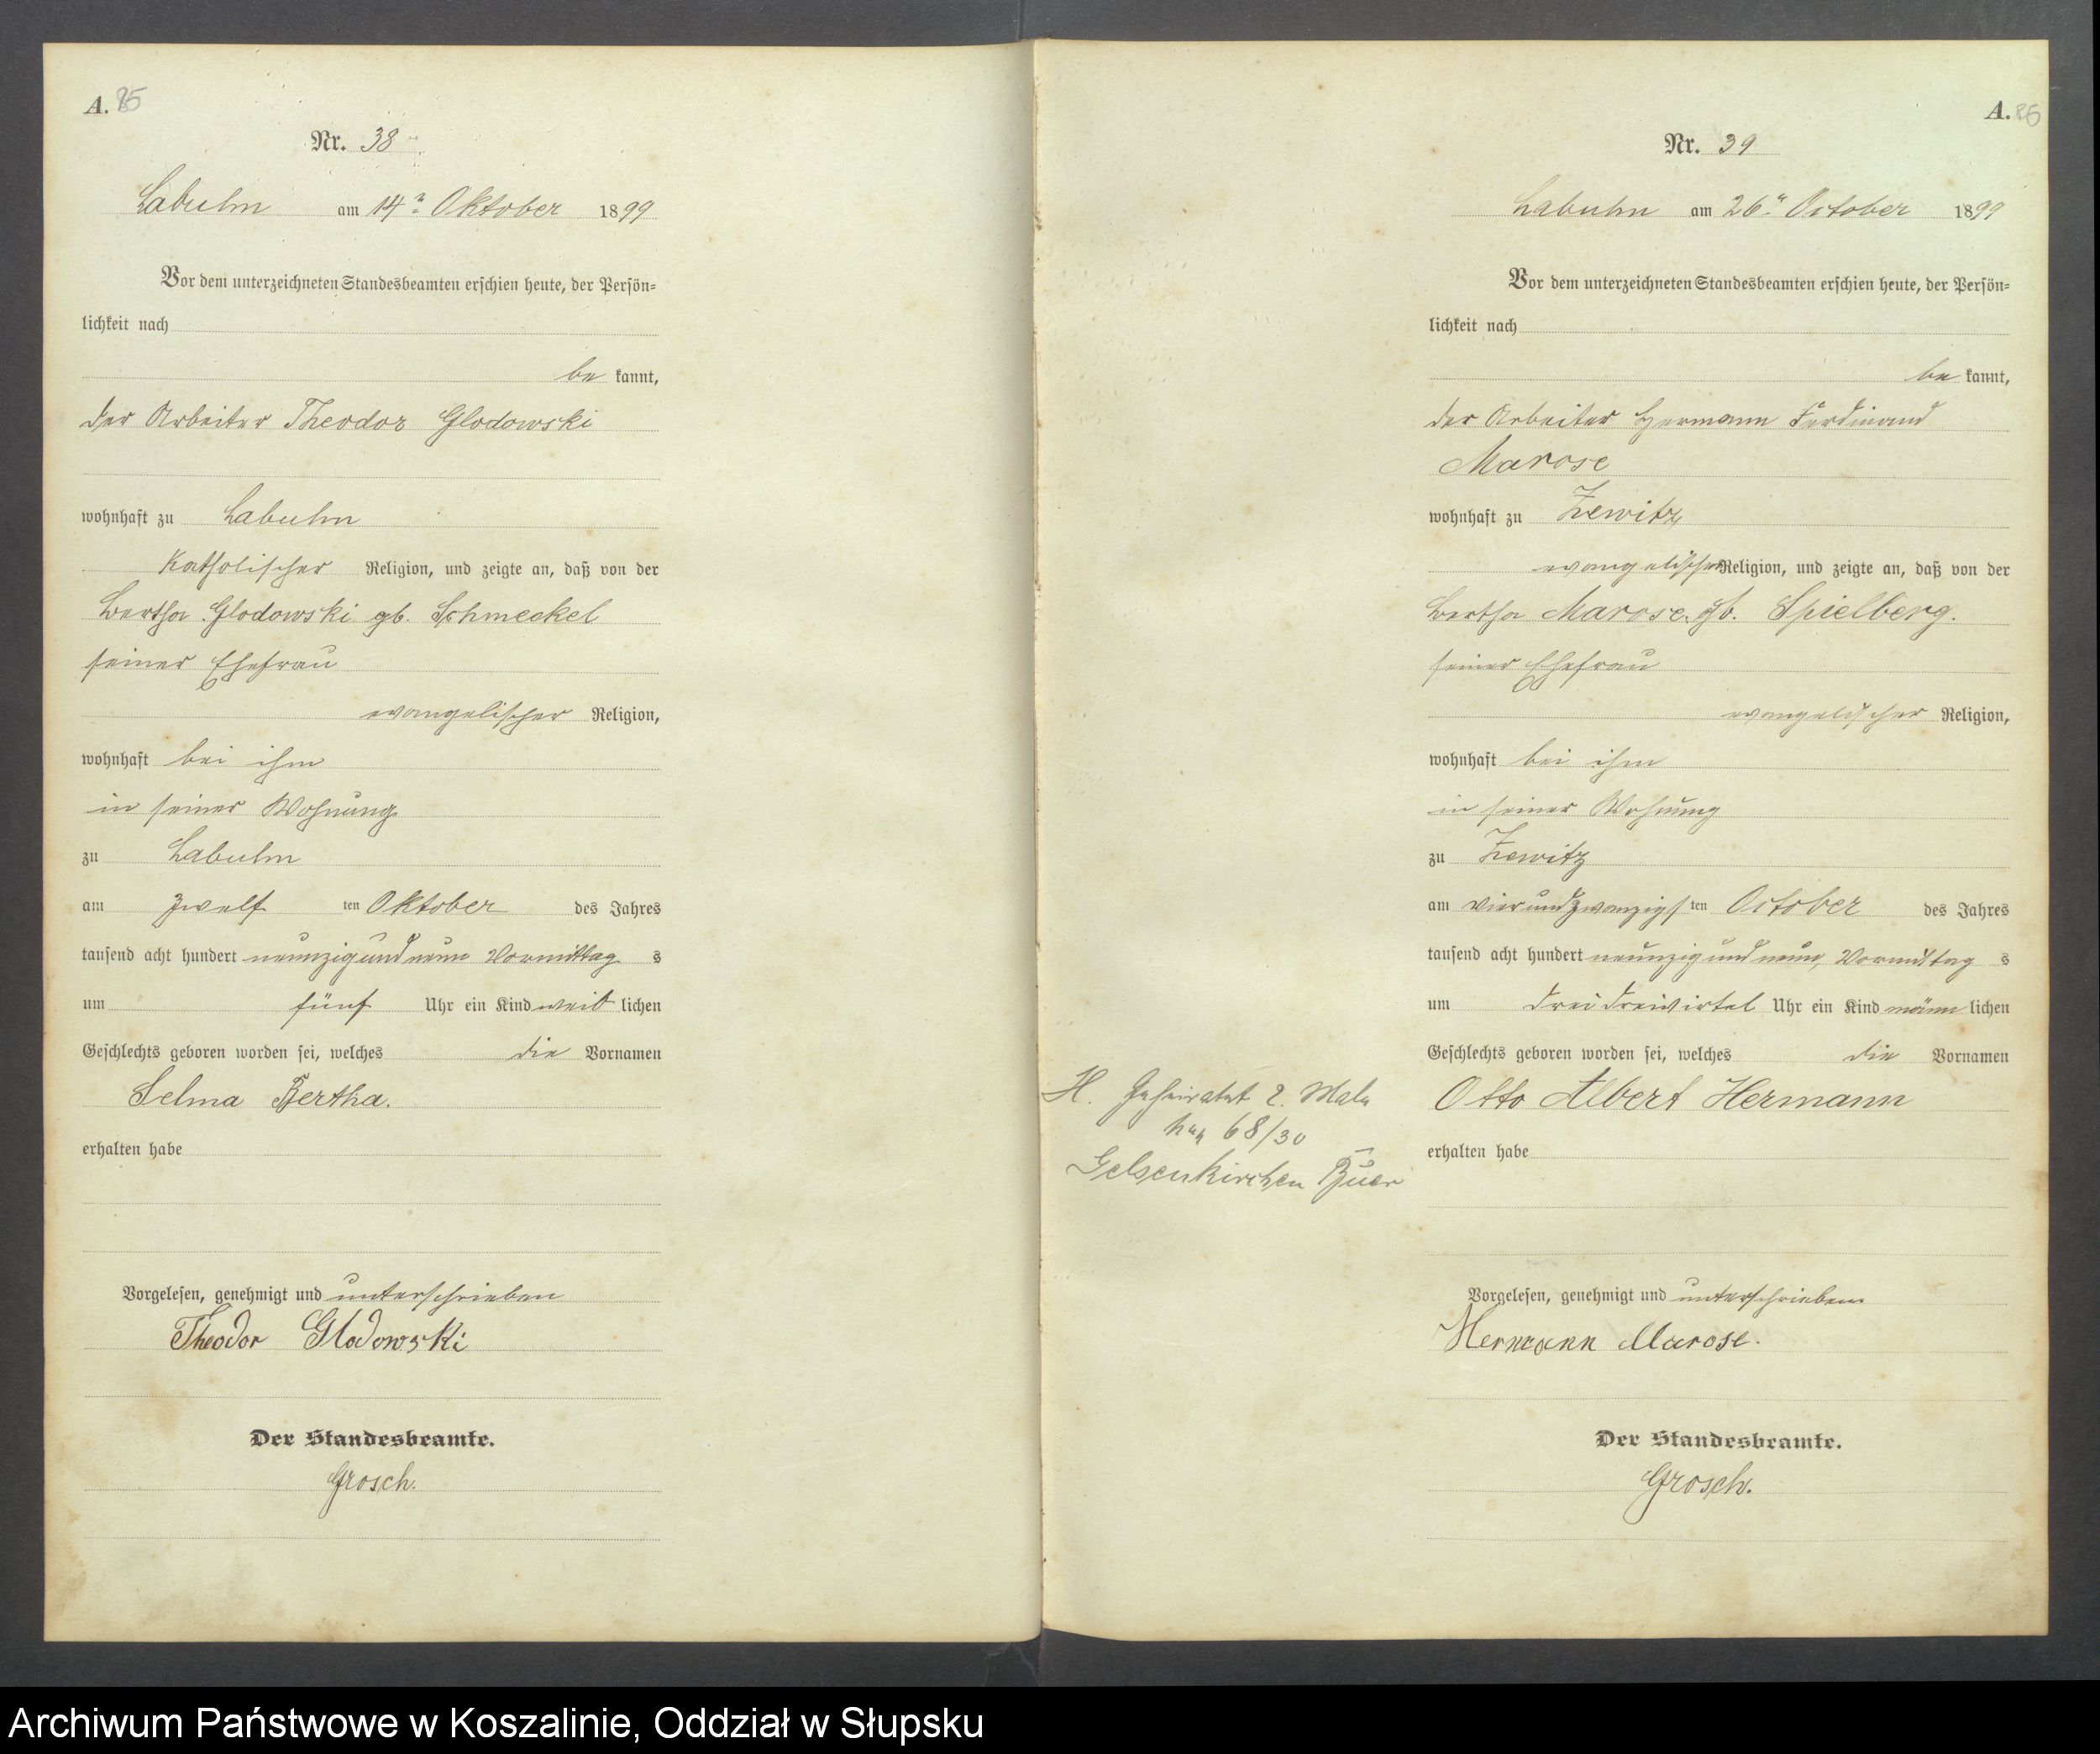 A. 85
Nr. 38
Labuhn am 14n Oktober 1899
Vor dem unterzeichneten Standesbeamten erschien heute, der Persön=
lichkeit nach
be kannt,
der Arbeiter Theodor Glodowski
wohnhaft zu Labuhn
katholischer Religion, und zeigte an, daß von der
Bertha Glodowski gb. Schmeckel
seiner Ehefrau
evangelischer Religion,
wohnhaft bei ihm
in seiner Wohnung
zu Labuhn
am zwölf ten Oktober des Jahres
tausend acht hundert neunzig und neun Vormittag s
um fünf Uhr ein Kind weib lichen
Geschlechts geboren worden sei, welches die Vornamen
Selma Bertha.
erhalten habe
Vorgelesen, genehmigt und unterschrieben
Theodor Glodowski
Der Standesbeamte.
Grosch.
A. 86
Nr. 39
Labuhn am 26n October 1899
Vor dem unterzeichneten Standesbeamten erschien heute, der Persön=
lichkeit nach
be kannt,
der Arbeiter Hermann Ferdinand
Marose
wohnhaft zu Zewitz
evangelischer Religion, und zeigte an, daß von der
Bertha Marose gb. Spielberg.
seiner Ehefrau
evangelischer Religion,
wohnhaft bei ihm
in seiner Wohnung
zu Zewitz
am vierundzwanzigs ten October des Jahres
tausend acht hundert neunzig und neun, Vormittag s
um drei dreiviertel Uhr ein Kind männ lichen
Geschlechts geboren worden sei, welches die Vornamen
Otto Albert Hermann
erhalten habe
Vorgelesen, genehmigt und unterschrieben
Hermann Marose.
Der Standesbeamte.
Grosch.
H. Geheiratet 2. Male
68/30
Gelsenkirchen Buer
Archiwum Państwowe w Koszalinie, Oddział w Słupsku